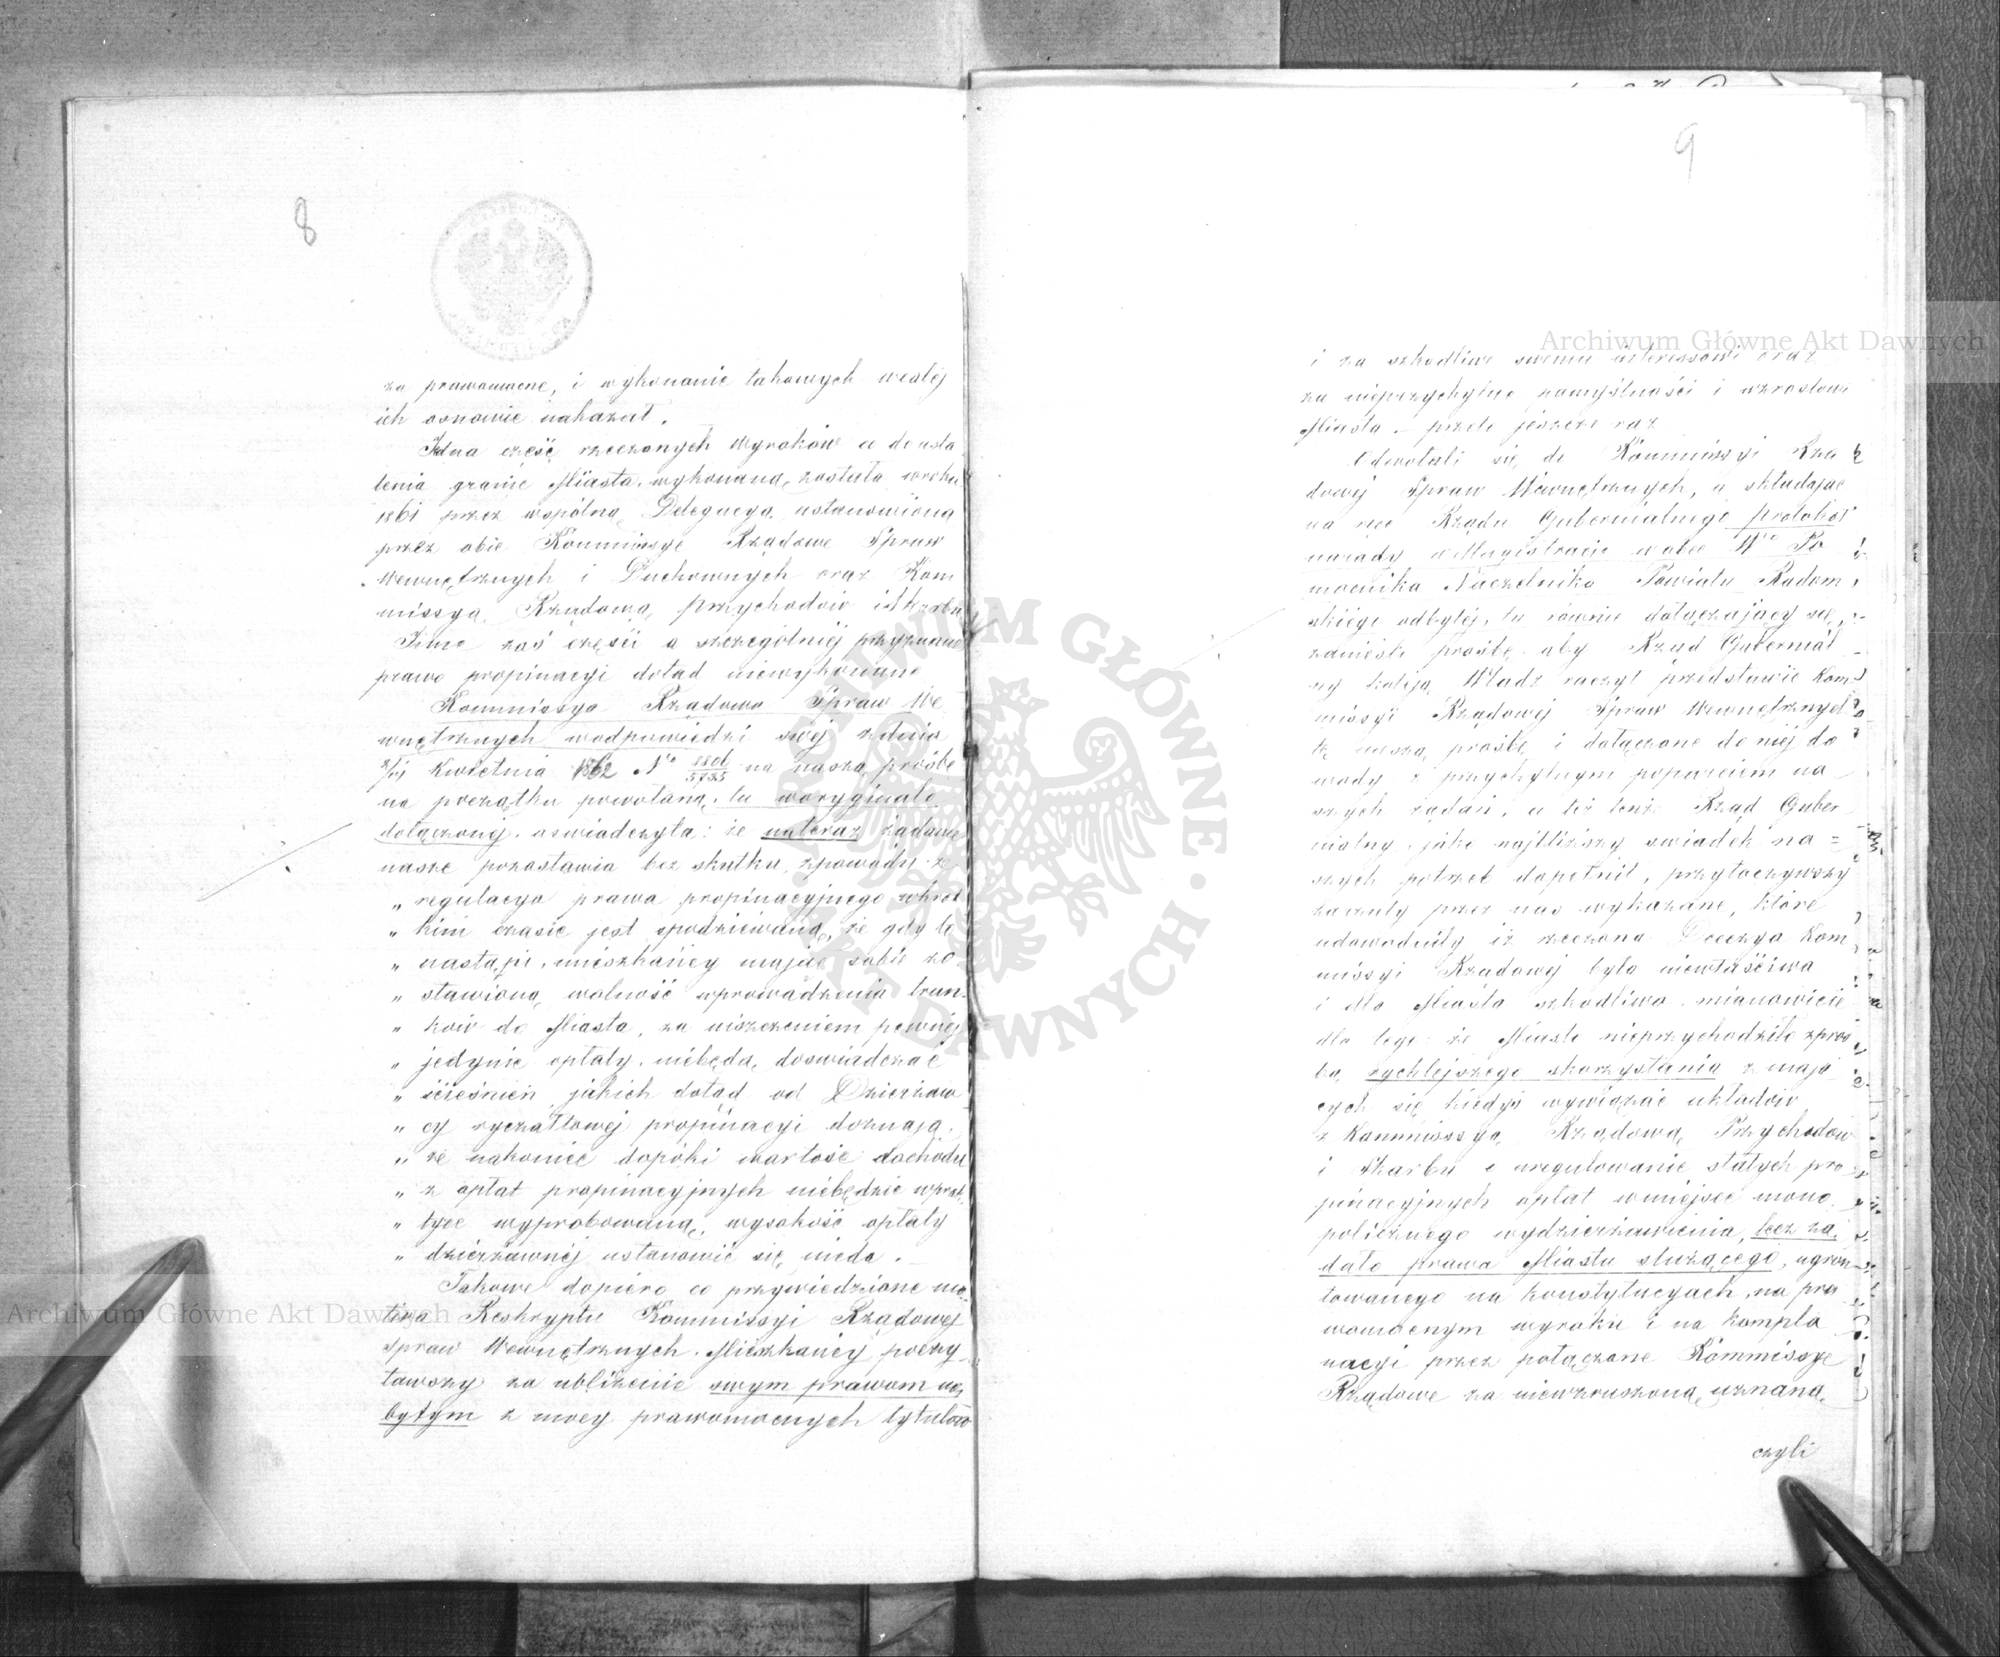 8
za prawomocne, i wykonanie takowych wedlej
ich osnowie nakazał.
Jedna część rzeczonych Wyroków co do usta
lenia granic Miasta, wykonaną została wroku
1861 przez wspólną Delegacyą ustanowioną
przez obie Kommissye Rządowe Spraw
Wewnętrznych i Duchownych oraz Kom
missyą Rządową przychodów i Skarbu
Inne zaś części a szczególniej przyznane
prawo propinacyi dotąd niewykonane
Kommissya Rządowa Spraw We
wnętrznych wodpowiedzi swej zdnia
Kwietnia 1862 No na naszą prośbę
na początku powołaną, tu woryginale
dołączonej, oświadczyła: że nateraz żądanie
nasze pozostawia bez skutku, zpowodu że
„ regulacya prawa propinacyjnego wkrót
„ kim czasie jest spodziewaną, że gdy to
„ nastąpi, mieszkańcy mając sobie zo
„ stawioną wolność wprowadzenia trun
„ ków do Miasta, za uiszczeniem pewnéj
„ jedynie opłaty, niebędą doświadczać
„ ścieśnień jakich dotąd od Dzierżaw
„ cy ryczałtowej propinacyi doznają.
„ że nakoniec dopóki wartość dochodu
„ z opłat propinacyjnych niebędzie wprak
„ tyce wyprobowaną, wysokość opłaty
„ dzierżawnéj ustanowić się nieda.
Takowe dopiero co przywiedzione mo
tiva Reskryptu Kommissyi Rządowej
Spraw Wewnętrznych, Mieszkańcy poczy
tawszy za ubliżenie swym prawom na
bytym z mocy prawomocnych tytułów
9
i za szkodliwe swemu interessowi oraz
za nieprzychylne pomyślności i wzrostowi
Miasta – przeto jeszcze raz
Odwołali się do Kommissyi Rzą
dowej Spraw Wewnętrznych, a składając
na ręce Rządu Gubernialnego protokół
narady wMagistracie wobec Wo Po
mocnika Naczelnika Powiatu Radom
skiego odbytéj, tu równie dołączający się,
zanieśli prośbę aby Rząd Gubernial
ny koleją Władz raczył przedstawić Kom
missyi Rządowej Spraw Wewnętrznych
tę naszą prośbę i dołączone do niej do
wody z przychylnym poparciem na
szych żądań, a też tenże Rząd Guber
nialny jako najbliższy świadek na=
szych potrzeb dopełnił, przytoczywszy
zarzuty przez nas wykazane, które
udowodniły iż rzeczona Decyzya Kom
missyi Rządowej była niewłaściwa
i dla Miasta szkodliwa, mianowicie
dla tego: że Miasto nieprzychodziło zproś
bą rychlejszego skorzystania z mają
cych się kiedyś wywiązać układów
z Kommissyą Rządową Przychodów
i Skarbu o uregulowanie stałych pro
pinacyjnych opłat wmiejsce mono
policznego wydzierżawienia, lecz żą
dało prawa Miastu służącego, ugrun
towanego na konstytucyach, na pra
womocnym wyroku i na kompla
nacyi przez połączone Kommissye
Rządowe za niewzruszoną uznaną,
czyli
Archiwum Główne Akt Dawnych
Archiwum Główne Akt Dawnych
ARCHIWUM GŁÓWNE AKT DAWNYCH